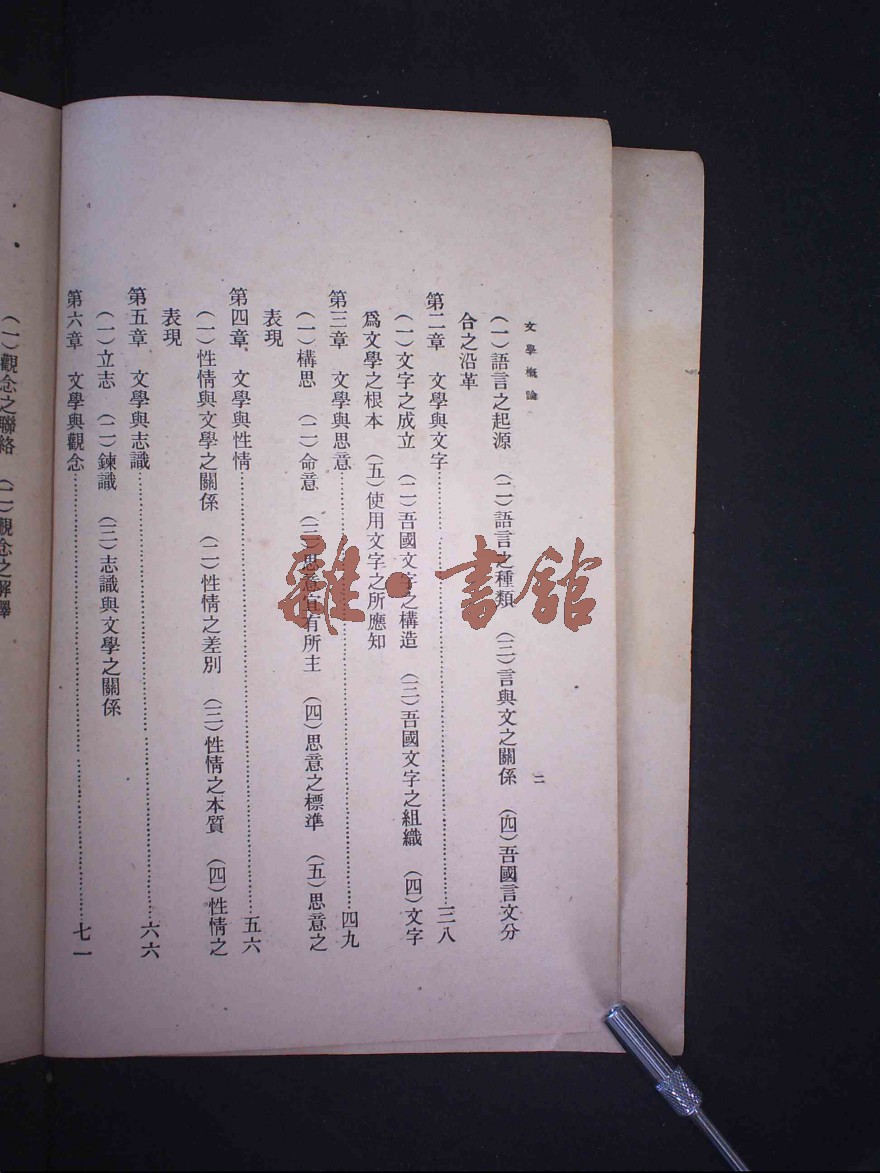 文學概論
二
（一）語言之起源　（二）語言之種類　（三）言與文之關係　（四）吾國言文分
合之沿革
第二章　文學與文字……三八
（一）文字之成立　（二）吾國文字之構造　（三）吾國文字之組織　（四）文字
爲文學之根本　（五）使用文字之所應知
第三章　文學與思意……四九
（一）構思　（二）命意　（三）思意宜有所主　（四）思意之標準　（五）思意之
表現
第四章　文學與性情……五六
（一）性情與文學之關係　（二）性情之差別　（三）性情之本質　（四）性情之
表現
第五章　文學與志識……六六
（一）立志　（二）鍊識　（三）志識與文學之關係
第六章　文學與觀念……七一
（一）觀念之聯絡　（二）觀念之解釋
雜·書館